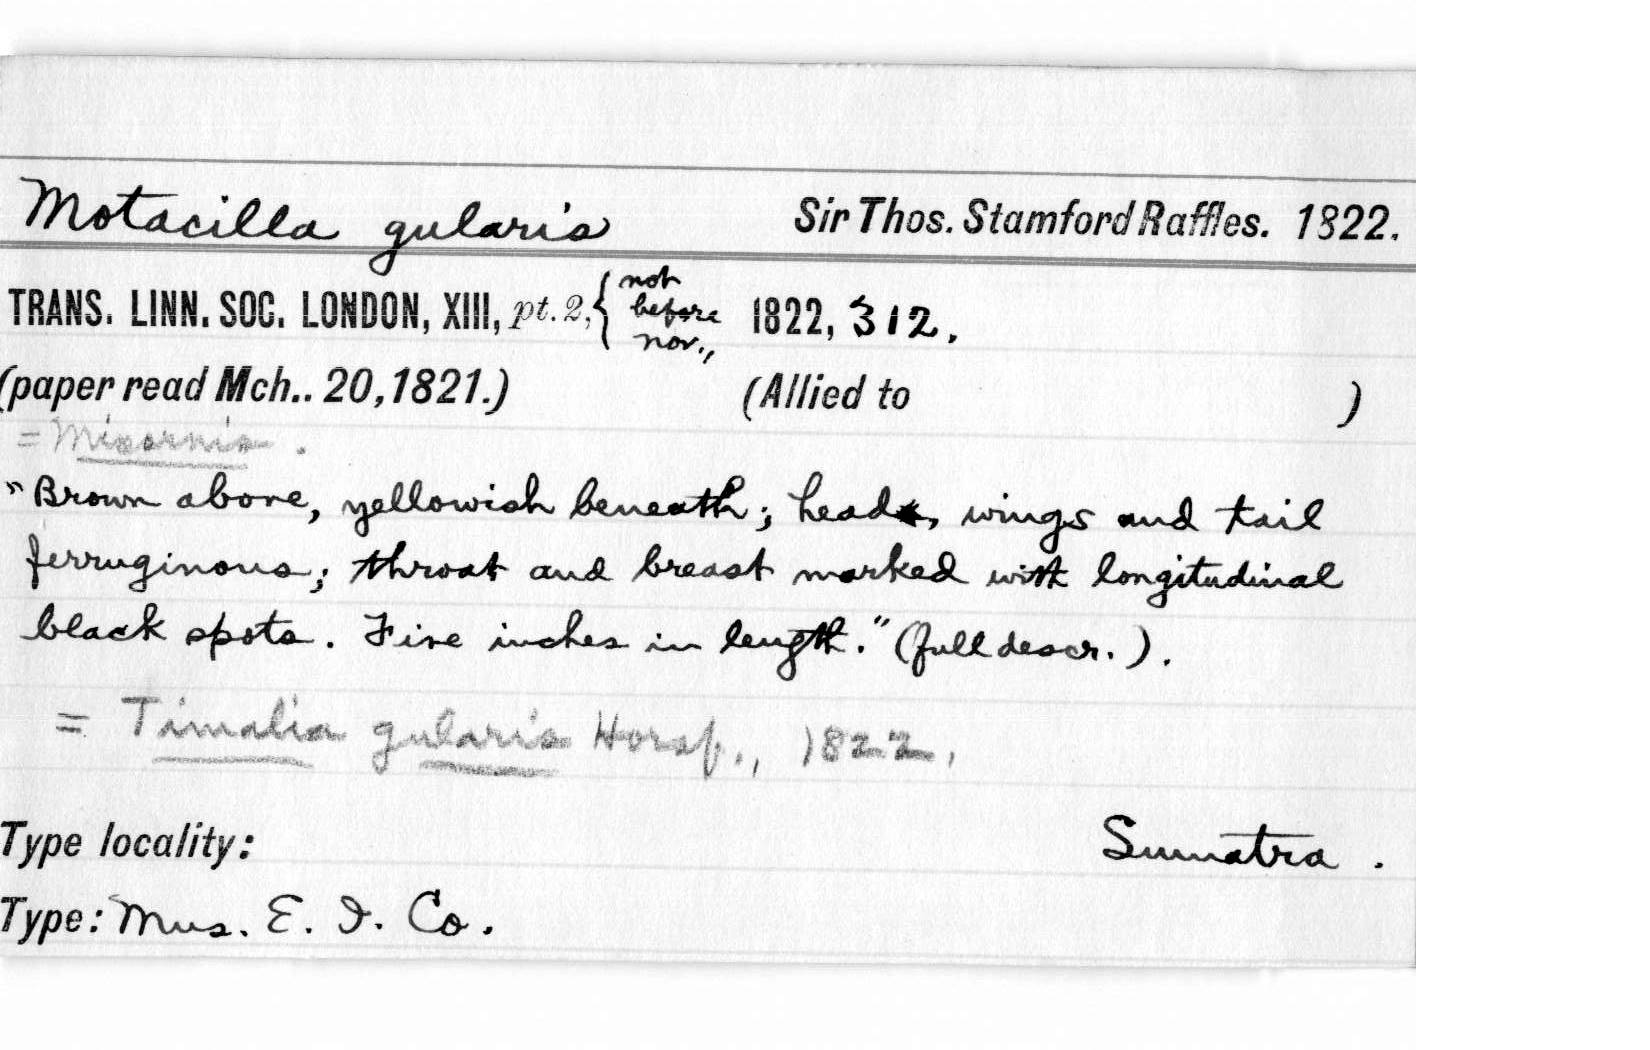 Motacilla gularis Sir Thos. Stamford Raffles. 1822.
TRANS. LINN. SOC. LONDON, XIII, pt. 2, { not before nov., 1822, 312.
(paper read Mch.. 20, 1821.) (Allied to )
= Mixornis.
"Brown above, yellowish beneath; head, wings and tail
ferruginous; throat and breast marked with longitudinal
black spots. Five inches in length." (full descr.).
= Timalia gularis Horsf., 1822.
Type locality: Sumatra.
Type: Mus. E. I. Co.